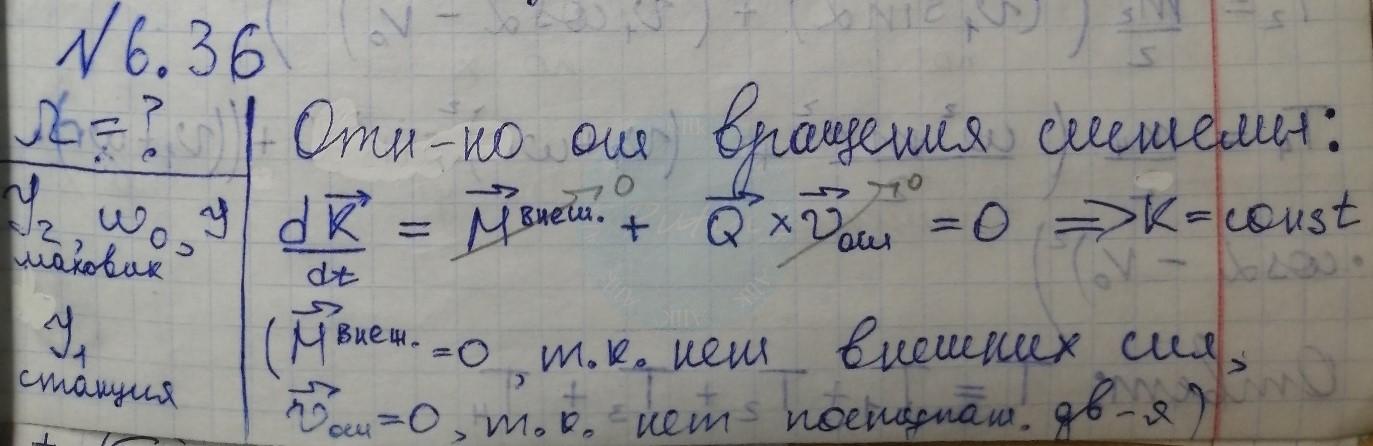 N 6.36
Ω = ?
J₂, ω₀, J
маховик
J₁
станция
Отн-но оси вращения системы:
dK⃗/dt = M⃗внеш.→0 + Q⃗ × v⃗оси→0 = 0 => K = const
(M⃗внеш. = 0, т.к. нет внешних сил,
v⃗оси = 0, т.к. нет поступат. дв-я)